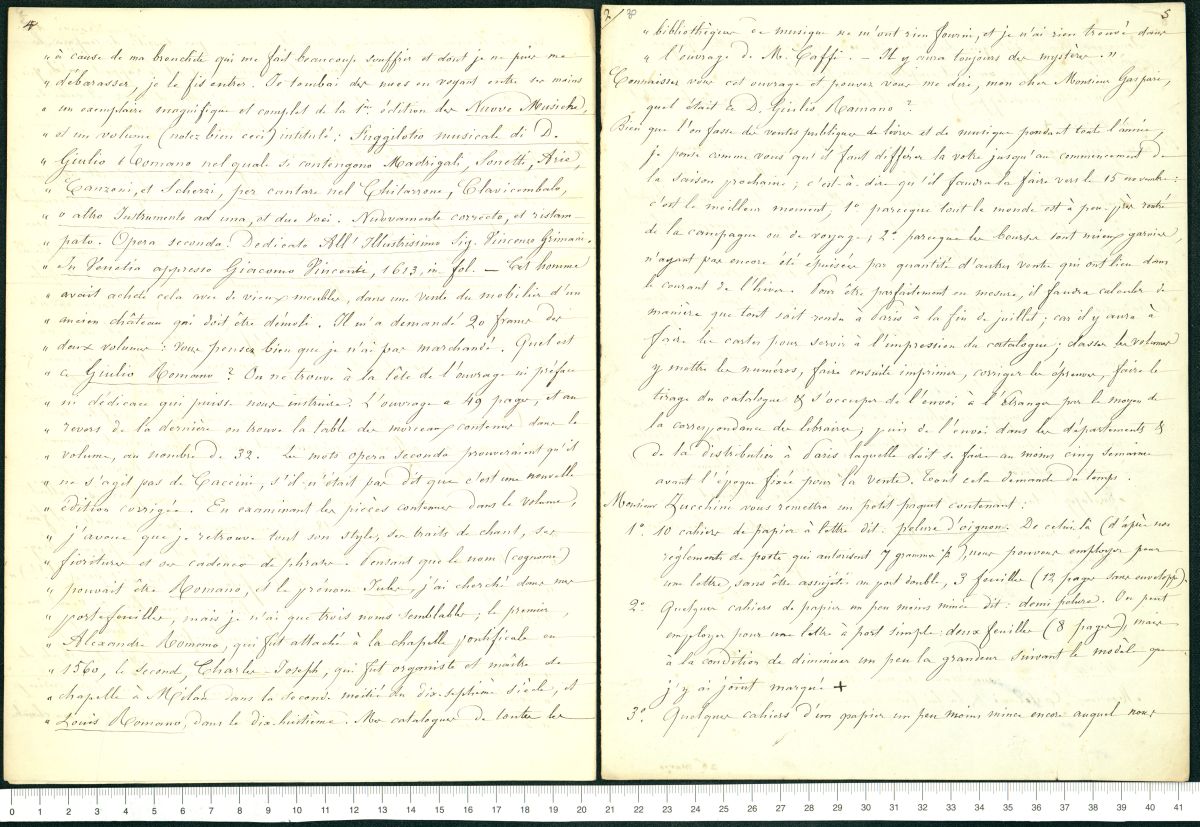 4
" à cause de ma bronchite qui me fait beaucoup souffrir et dont je ne puis me
" débarasser, je le fis entrer. Je tombai des nues en voyant entre ses mains
" un exemplaire magnifique et complet de la 1ère édition des Nuove Musiche,
" et un volume (notez bien ceci) intitulé: Fuggilotio musicale di D.
" Giulio Romano nel quale si contengono Madrigali, Sonetti, Arie,
" Canzoni, et Scherzi, per cantare nel Chitarrone, Clavicembalo,
" o altro Instrumento ad una, et due voci. Nuovamente corretto, et ristam-
" pato. Opera seconda. Dedicato All' Illustrissimo Sig. Vincenzo Grimani.
" In Venetia appresso Giacomo Vincenti, 1613, in fol. — Cet homme
" avait acheté cela avec de vieux meubles, dans une vente du mobilier d'un
" ancien château qui doit être démoli. Il m'a demandé 20 francs des
" deux volumes: vous pensez bien que je n'ai pas marchandé. Quel est
" ce Giulio Romano? On ne trouve à la tête de l'ouvrage ni préface
" ni dédicace qui puisse nous instruire. L'ouvrage a 49 pages, et au
" revers de la dernière on trouve la table des morceaux contenus dans le
" volume, au nombre de 32. Les mots opera seconda prouveraient qu'il
" ne s'agit pas de Caccini, s'il n'était pas dit que c'est une nouvelle
" édition corrigée. En examinant les pièces contenues dans le volume,
" j'avoue que je retrouve tout son style, ses traits de chant, ses
" fioritures et ses cadences de phrases. Pensant que le nom (cognome)
" pouvait être Romano, et le prénom Jules, j'ai cherché dans mes
" portefeuilles, mais je n'ai que trois noms semblables; le premier,
" Alexandre Romano, qui fut attaché à la chapelle pontificale en
" 1560, le second, Charles-Joseph, qui fut organiste et maître de
" chapelle à Milan dans la seconde moitié du dix-septième siècle, et
" Louis Romano, dans le dix-huitième. Mes catalogues de toutes les
2/
5
" bibliothèques de musique ne m'ont rien fourni, et je n'ai rien trouvé dans
" l'ouvrage de M. Caffi. — Il y aura toujours des mystères."
Connaissez vous cet ouvrage et pouvez vous me dire, mon cher Monsieur Gaspari,
quel était ce D. Giulio Romano?
Bien que l'on fasse des ventes publiques de livres et de musique pendant toute l'année,
je pense comme vous qu'il faut différer la vôtre jusqu'au commencement de
la saison prochaine; c'est-à-dire qu'il faudra la faire vers le 15 novembre:
c'est le meilleur moment, 1º parceque tout le monde est à peu-près rentré
de la campagne ou de voyage, 2º parceque les bourses sont mieux garnies,
n'ayant pas encore été épuisées par quantité d'autres ventes qui ont lieu dans
le courant de l'hiver. Pour être parfaitement en mesure, il faudra calculer de
manière que tout soit rendu à Paris à la fin de juillet; car il y aura à
faire les cartes pour servir à l'impression du catalogue; classer les volumes
y mettre les numéros, faire ensuite imprimer, corriger les épreuves, faire le
tirage du catalogue & s'occuper de l'envoi à l'étranger par le moyen de
la correspondance des libraires, puis de l'envoi dans les départements &
de la distribution à Paris laquelle doit se faire au moins cinq semaines
avant l'époque fixée pour la vente. Tout cela demande du temps.
Monsieur Zucchini vous remettra un petit paquet contenant:
1º. 10 cahiers de papier à lettre dit: pelure d'oignon. De celui-là (d'après nos
règlements de poste qui autorisent 7 grammes ½) nous pouvons employer pour
une lettre, sans être assujetie au port double, 3 feuilles (12 pages sans enveloppe).
2º Quelques cahiers de papier un peu moins mince dit: demi pelure. On peut
employer pour une lettre à port simple: deux feuilles (8 pages) mais
à la condition de diminuer un peu la grandeur suivant le modèle que
j'y ai joint marqué +
3º. Quelques cahiers d'un papier un peu moins mince encore auquel nous
0 1 2 3 4 5 6 7 8 9 10 11 12 13 14 15 16 17 18 19 20 21 22 23 24 25 26 27 28 29 30 31 32 33 34 35 36 37 38 39 40 41